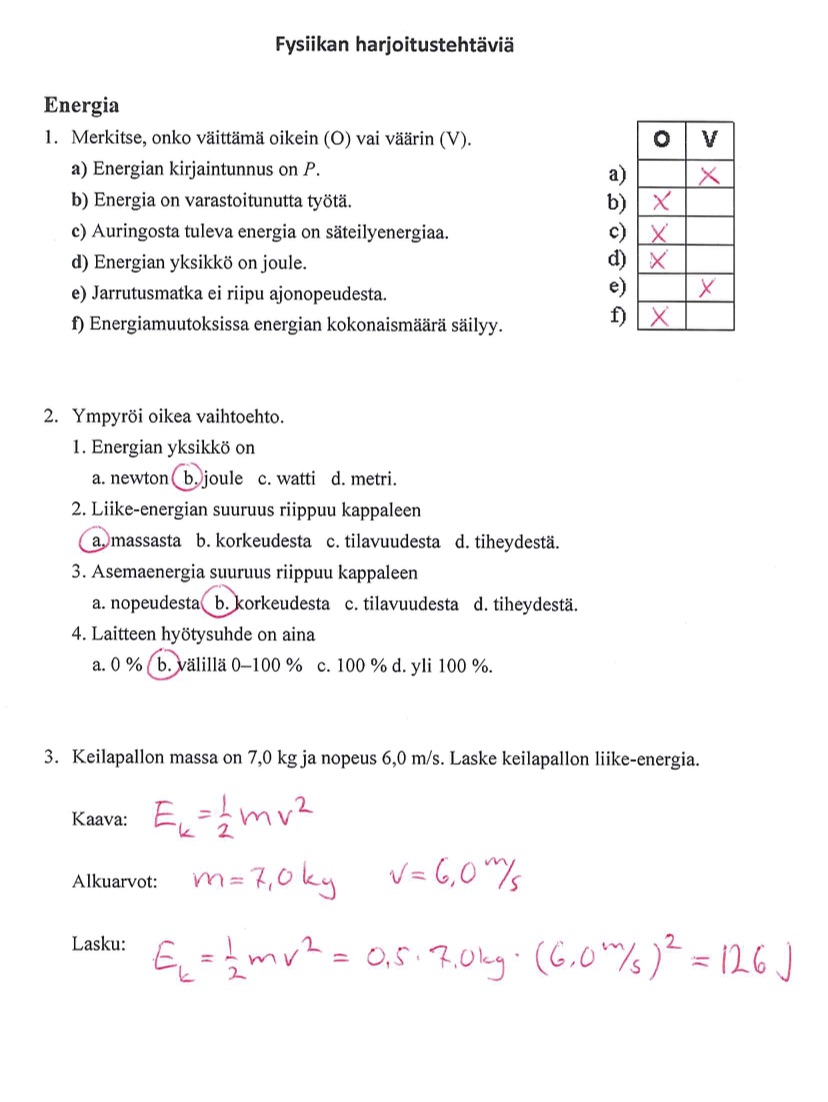 Fysiikan harjoitustehtäviä
Energia
1. Merkitse, onko väittämä oikein (O) vai väärin (V).
O V
a) Energian kirjaintunnus on P.
a) X
b) Energia on varastoitunutta työtä.
b) X
c) Auringosta tuleva energia on säteilyenergiaa.
c) X
d) Energian yksikkö on joule.
d) X
e) Jarrutusmatka ei riipu ajonopeudesta.
e) X
f) Energiamuutoksissa energian kokonaismäärä säilyy.
f) X
2. Ympyröi oikea vaihtoehto.
1. Energian yksikkö on
a. newton b. joule c. watti d. metri.
2. Liike-energian suuruus riippuu kappaleen
a. massasta b. korkeudesta c. tilavuudesta d. tiheydestä.
3. Asemaenergia suuruus riippuu kappaleen
a. nopeudesta b. korkeudesta c. tilavuudesta d. tiheydestä.
4. Laitteen hyötysuhde on aina
a. 0 % b. välillä 0–100 % c. 100 % d. yli 100 %.
3. Keilapallon massa on 7,0 kg ja nopeus 6,0 m/s. Laske keilapallon liike-energia.
Kaava: E_k = ½ mv²
Alkuarvot: m = 7,0 kg v = 6,0 m/s
Lasku: E_k = ½ mv² = 0,5 · 7,0 kg · (6,0 m/s)² = 126 J